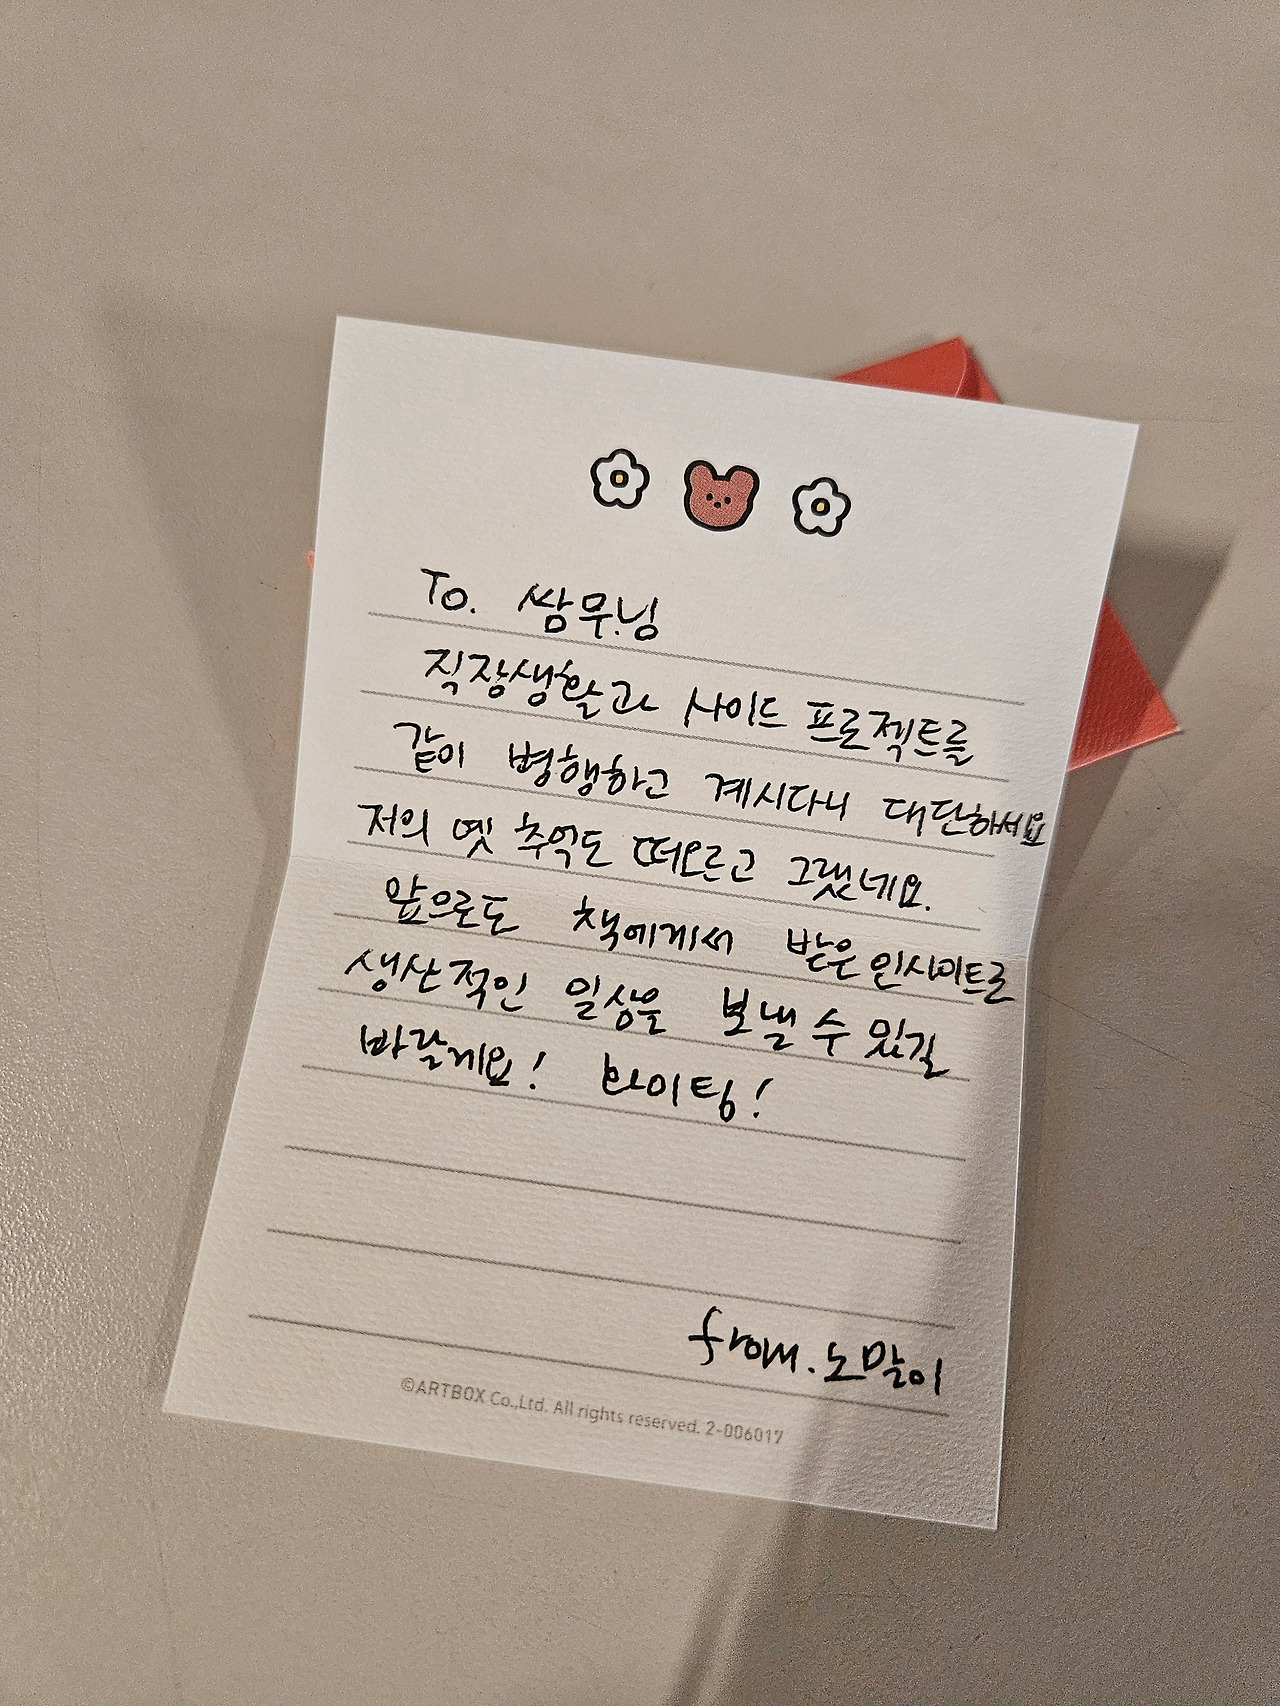 To. 쌈무님
직장생활과 사이드 프로젝트를
같이 병행하고 계시다니 대단하세요
저의 옛 추억도 떠오르고 그랬네요.
앞으로도 책에게서 받은 인사이트로
생산적인 일상을 보낼 수 있길
바랄게요! 화이팅!
from. 노말이
©ARTBOX Co.,Ltd. All rights reserved. 2-006017